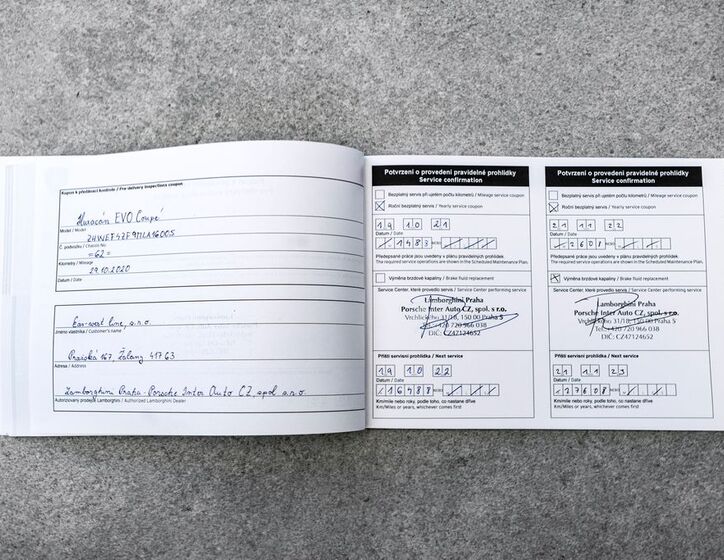 Kupon k předávací kontrole / Pre delivery inspections coupon
Huracán EVO Coupé
Model / Model
Č. podvozku / Chassis No
=62=
Kilometry / Mileage
29.10.2020
Datum / Date
Ear-west line, s.r.o.
Jméno vlastníka / Customer's name
Pražská 167, Žalany 417 63
Adresa / Address
Lamborghini Praha - Porsche Inter Auto CZ, spol. s.r.o.
Autorizovaný prodejce Lamborghini / Authorized Lamborghini Dealer
Potvrzení o provedení pravidelné prohlídky
Service confirmation
Bezplatný servis při ujetém počtu kilometrů / Mileage service coupon
Roční bezplatný servis / Yearly service coupon
19 10 21
Datum / Date
1483
Předepsané práce jsou uvedeny v plánu pravidelných prohlídek
The required service operations are shown in the Scheduled Maintenance Plan.
Výměna brzdové kapaliny / Brake fluid replacement
Service Center, které provedlo servis / Service Center performing service
Lamborghini Praha
Porsche Inter Auto CZ, spol. s r.o.
Vrchlického 31/18, 150 00 Praha 5
Tel.: +420 720 966 038
DIČ: CZ47124652
Příští servisní prohlídka / Next service
19 10 22
Datum / Date
16488
Km/míle nebo roky, podle toho, co nastane dříve
Km/Miles or years, whichever comes first
Potvrzení o provedení pravidelné prohlídky
Service confirmation
Bezplatný servis při ujetém počtu kilometrů / Mileage service coupon
Roční bezplatný servis / Yearly service coupon
21 11 22
Datum / Date
2608
Předepsané práce jsou uvedeny v plánu pravidelných prohlídek
The required service operations are shown in the Scheduled Maintenance Plan.
Výměna brzdové kapaliny / Brake fluid replacement
Service Center, které provedlo servis / Service Center performing service
Lamborghini Praha
Porsche Inter Auto CZ, spol. s r.o.
Vrchlického 31/18, 150 00 Praha 5
Tel.: +420 720 966 038
DIČ: CZ47124652
Příští servisní prohlídka / Next service
21 11 23
Datum / Date
27608
Km/míle nebo roky, podle toho, co nastane dříve
Km/Miles or years, whichever comes first